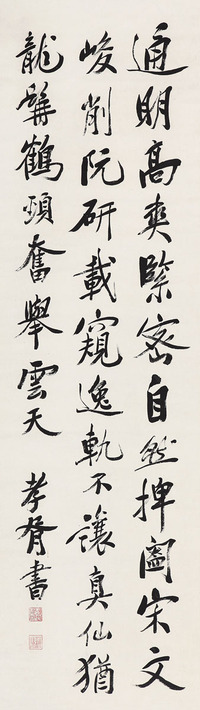 通明高爽緊密自然捭闔宋文
峻削阮研載窺逸軌不讓真仙猶
龍騫鶴頭奮舉雲天
孝胥書